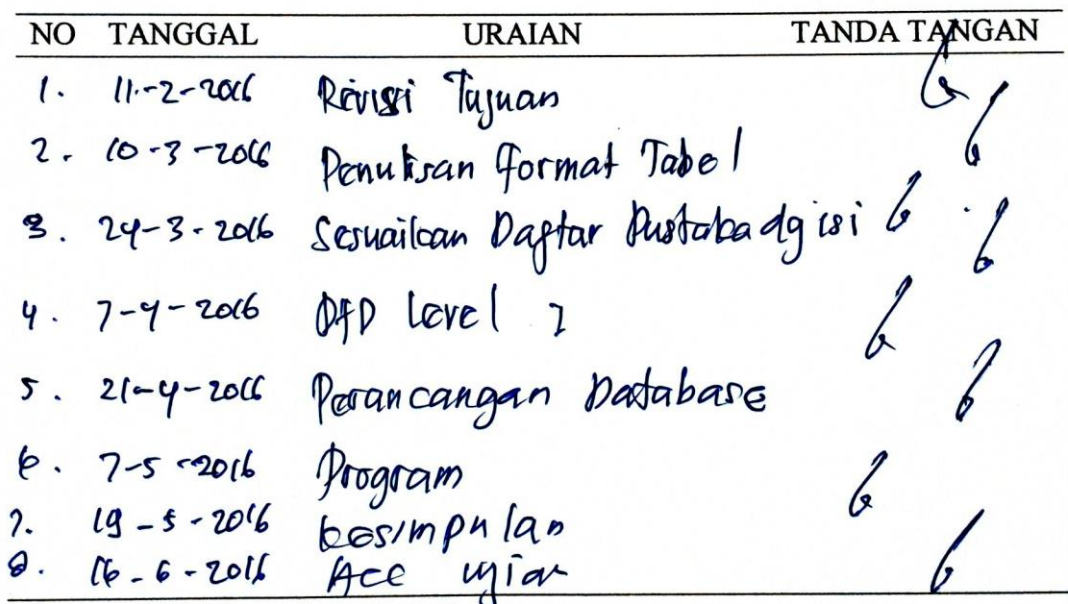 NO TANGGAL URAIAN TANDA TANGAN
1. 11-2-2016 Revisi Tujuan
2. 10-3-2016 Penulisan format Tabel
3. 24-3-2016 Sesuaikan Daftar Pustaka dg isi
4. 7-4-2016 DFD Level 1
5. 21-4-2016 Perancangan Database
6. 7-5-2016 Program
7. 19-5-2016 kesimpulan
8. 16-6-2016 Acc ujian